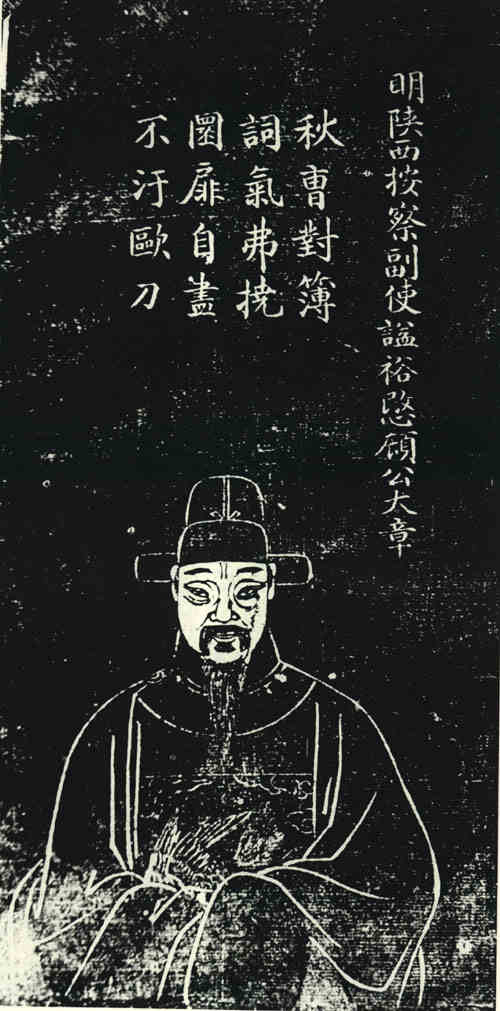 明陝西按察副使諡裕愍顧公大章
秋曺對簿
詞氣弗撓
圜扉自盡
不汙歐刀